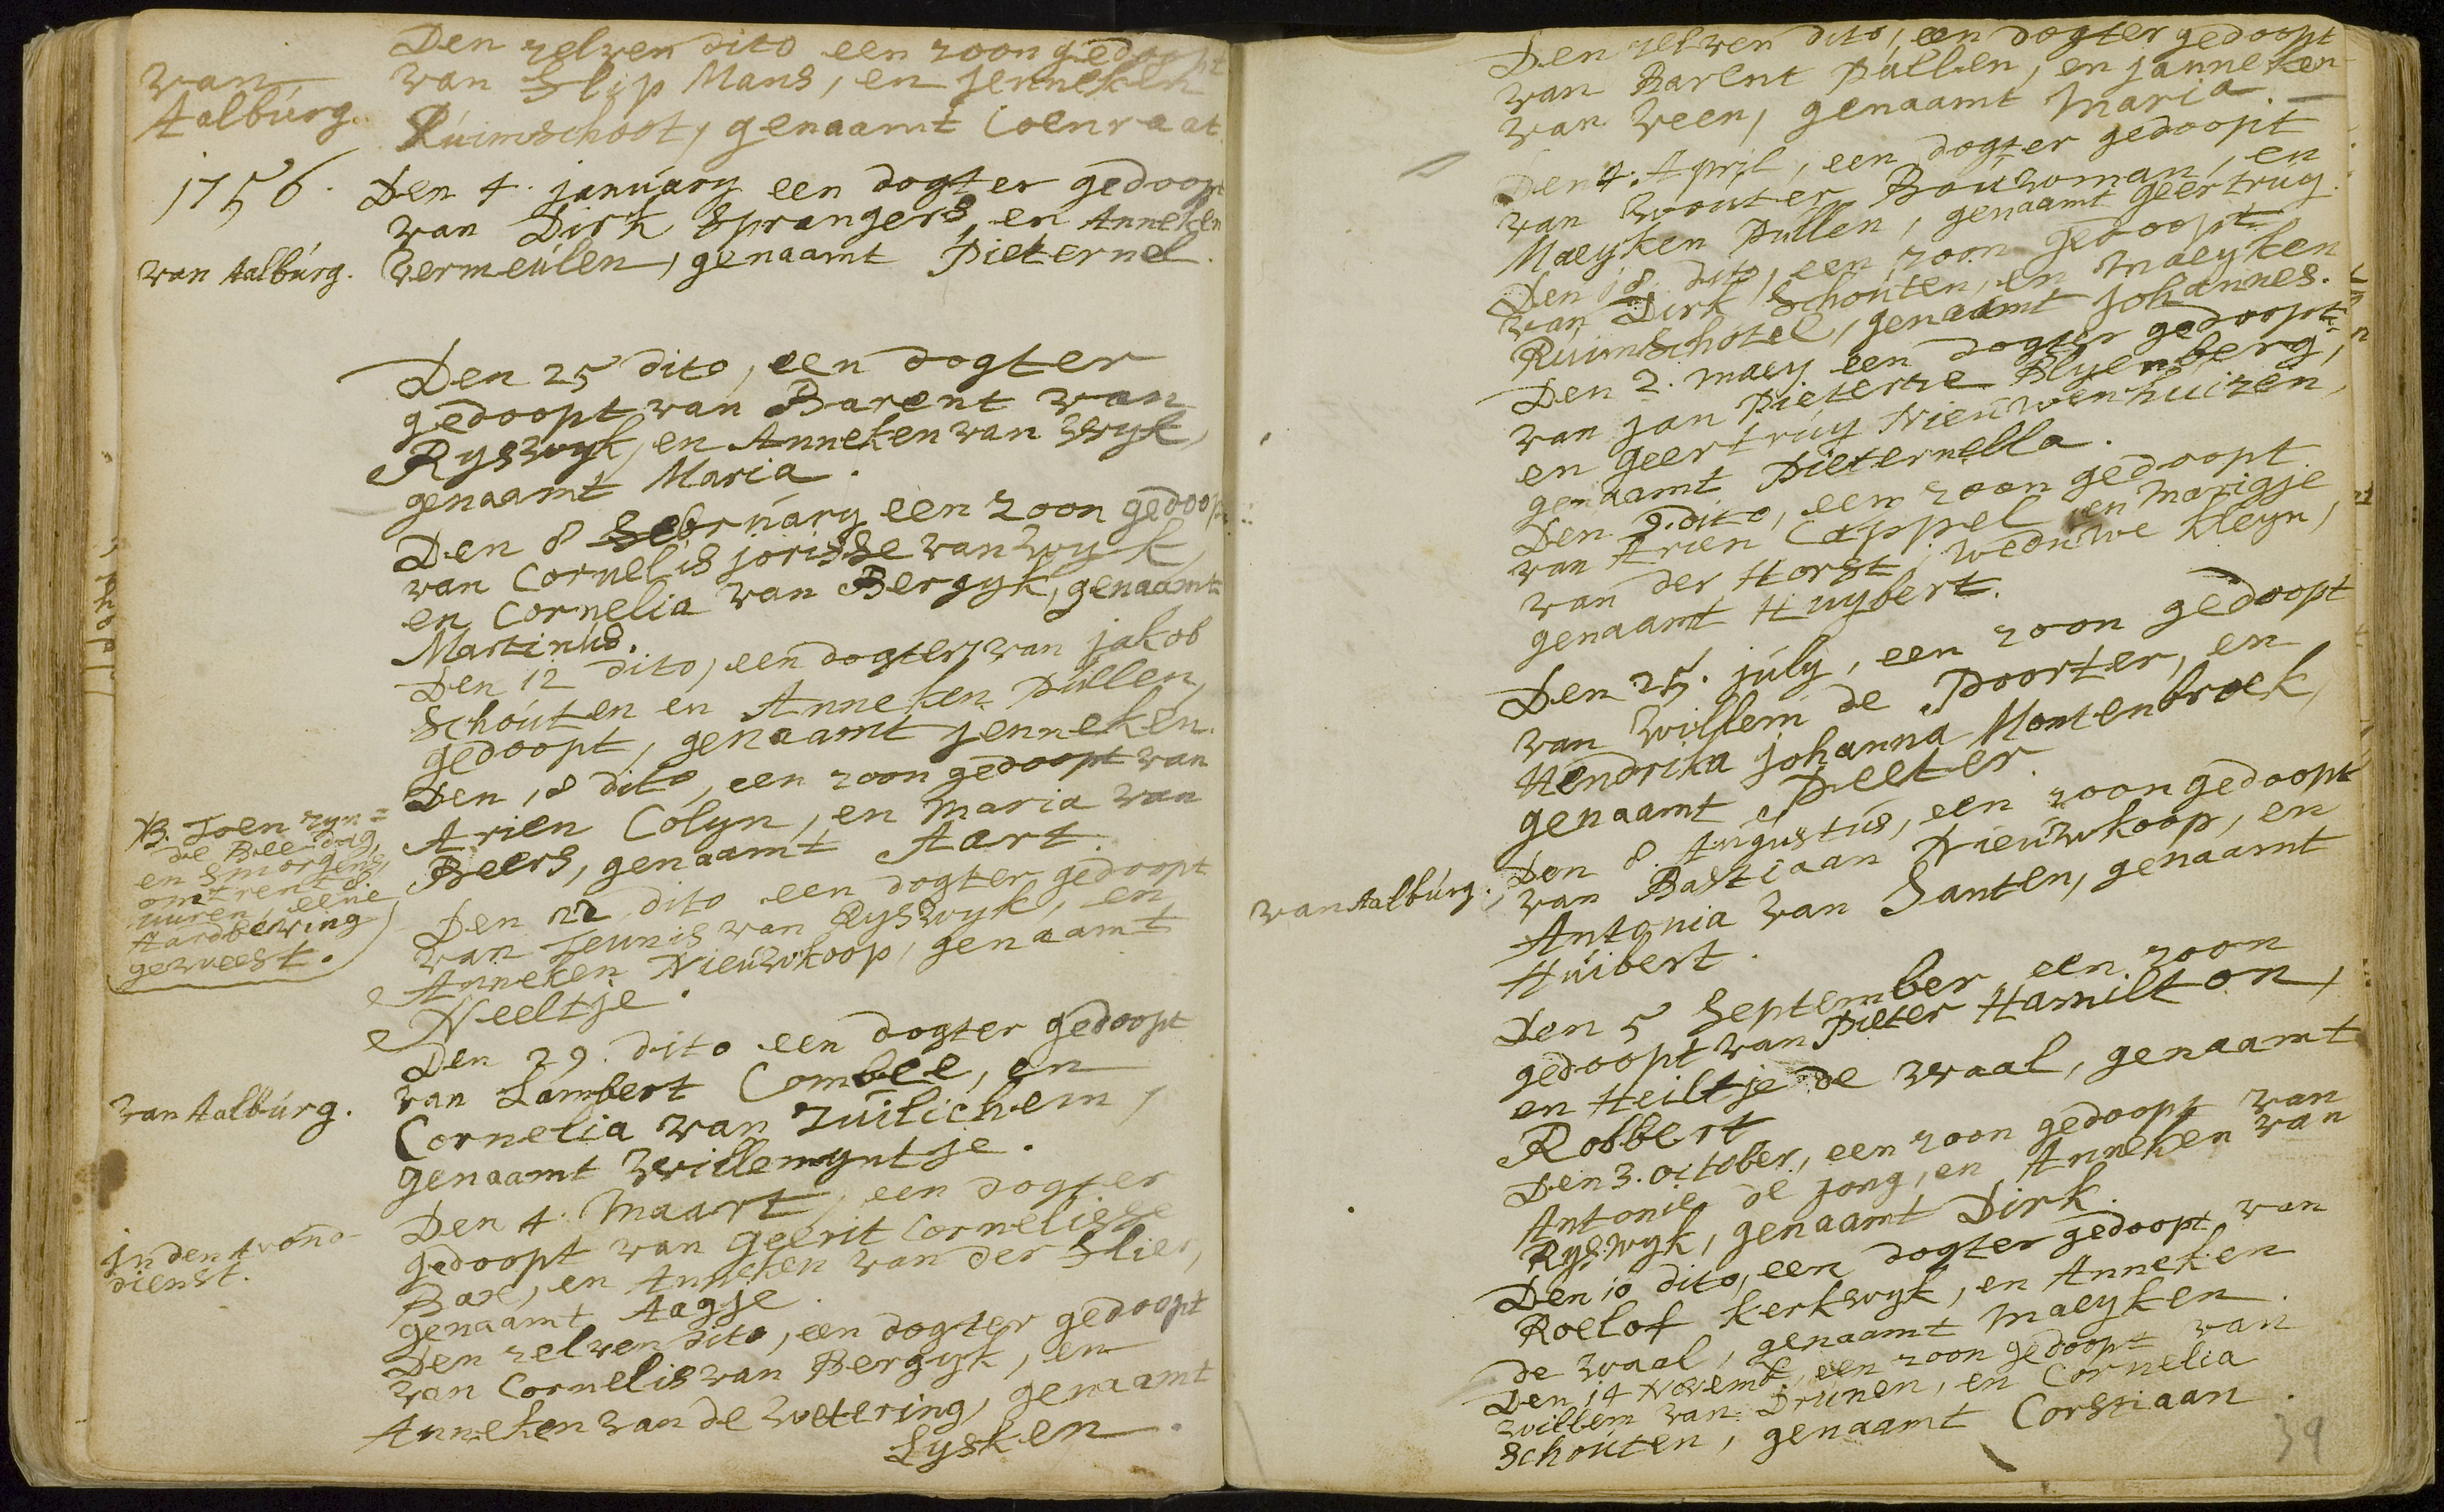 Den zelven dito een zoon gedoopt
van Flip Mans, en Jenneken
Ruimschoot, genaamt Coenraat
van
Aalburg.
1756.
Den 4. january een dogter gedoopt
van Dirk Sprangers, en Anneken
Vermeulen, genaamt Pieternel.
van Aalburg.
Den 25 dito, een dogter
gedoopt van Barent van
Ryswyk, en Anneken van Wyk,
genaamt Maria.
Den 8 February een zoon gedoopt
van Cornelis jorisse van Wyk,
en Cornelia van Bergyk, genaamt
Martinus.
Den 12 dito, een dogter, van jakob
Schouten en Anneken Pullen,
gedoopt, genaamt Jenneken.
Den 18 dito, een zoon gedoopt van
Arien Colyn, en Maria van
Beers, genaamt Aart.
NB. Toen zyn=
de Beeldag,
en smorgens,
omtrent 8
uuren, eene
Aardbeving
geweest.
Den 22 dito een dogter gedoopt
van Teunis van Ryswyk, en
Anneken Nieuwkoop, genaamt
Neeltje.
Den 29. dito een dogter gedoopt
van Lambert Combee, en
Cornelia van Zuilichem,
genaamt Willemyntje.
van Aalburg.
Den 4. Maart, een dogter
gedoopt van Geerit Cornelisse
Bax, en Anneken van der Flier,
genaamt Aagje.
In den Avond=
dienst.
Den zelven dito, een dogter gedoopt
van Cornelis van Bergyk, en
Anneken van de Wetering, genaamt
Lysken.
Den zelven dito, een dogter gedoopt
van Barent Pullen, en janneken
van Veen, genaamt Maria.
Den 4. April, een dogter gedoopt
van Wouter Bouwman, en
Maeyken Pullen, genaamt geertruy.
Den 18 dito, een zoon gedoopt
van Dirk Schouten, en Maeyken
Ruimschotel, genaamt Johannes.
Den 2. Maey een dogter gedoopt
van Jan Pieterse Blyenberg,
en geertruy Nieuwenhuizen,
genaamt Pieternella.
Den 9. dito, een zoon gedoopt
van Arien Cappel, en Marigje
van der Horst, weduwe Kleyn,
genaamt Huybert.
Den 25. july, een zoon gedoopt
van Willem de Poorter, en
Hendrika Johanna Montenbroek,
genaamt Peeter.
Den 8. Augustus, een zoon gedoopt
van Bastiaan Nieuwkoop, en
Antonia van Santen, genaamt
Huibert.
van Aalburg.
Den 5 September een zoon
gedoopt van Pieter Hamilton,
en Heiltje de Waal, genaamt
Robbert
Den 3. October, een zoon gedoopt van
Antonie de Jong, en Anneken van
Ryswyk, genaamt Dirk.
Den 10 dito, een dogter gedoopt van
Roelof Kerkwyk, en Anneken
de Waal, genaamt Maeyken.
Den 14 Novemb, een zoon gedoopt van
Willem van Drunen, en Cornelia
Schouten, genaamt Corstiaan.
39